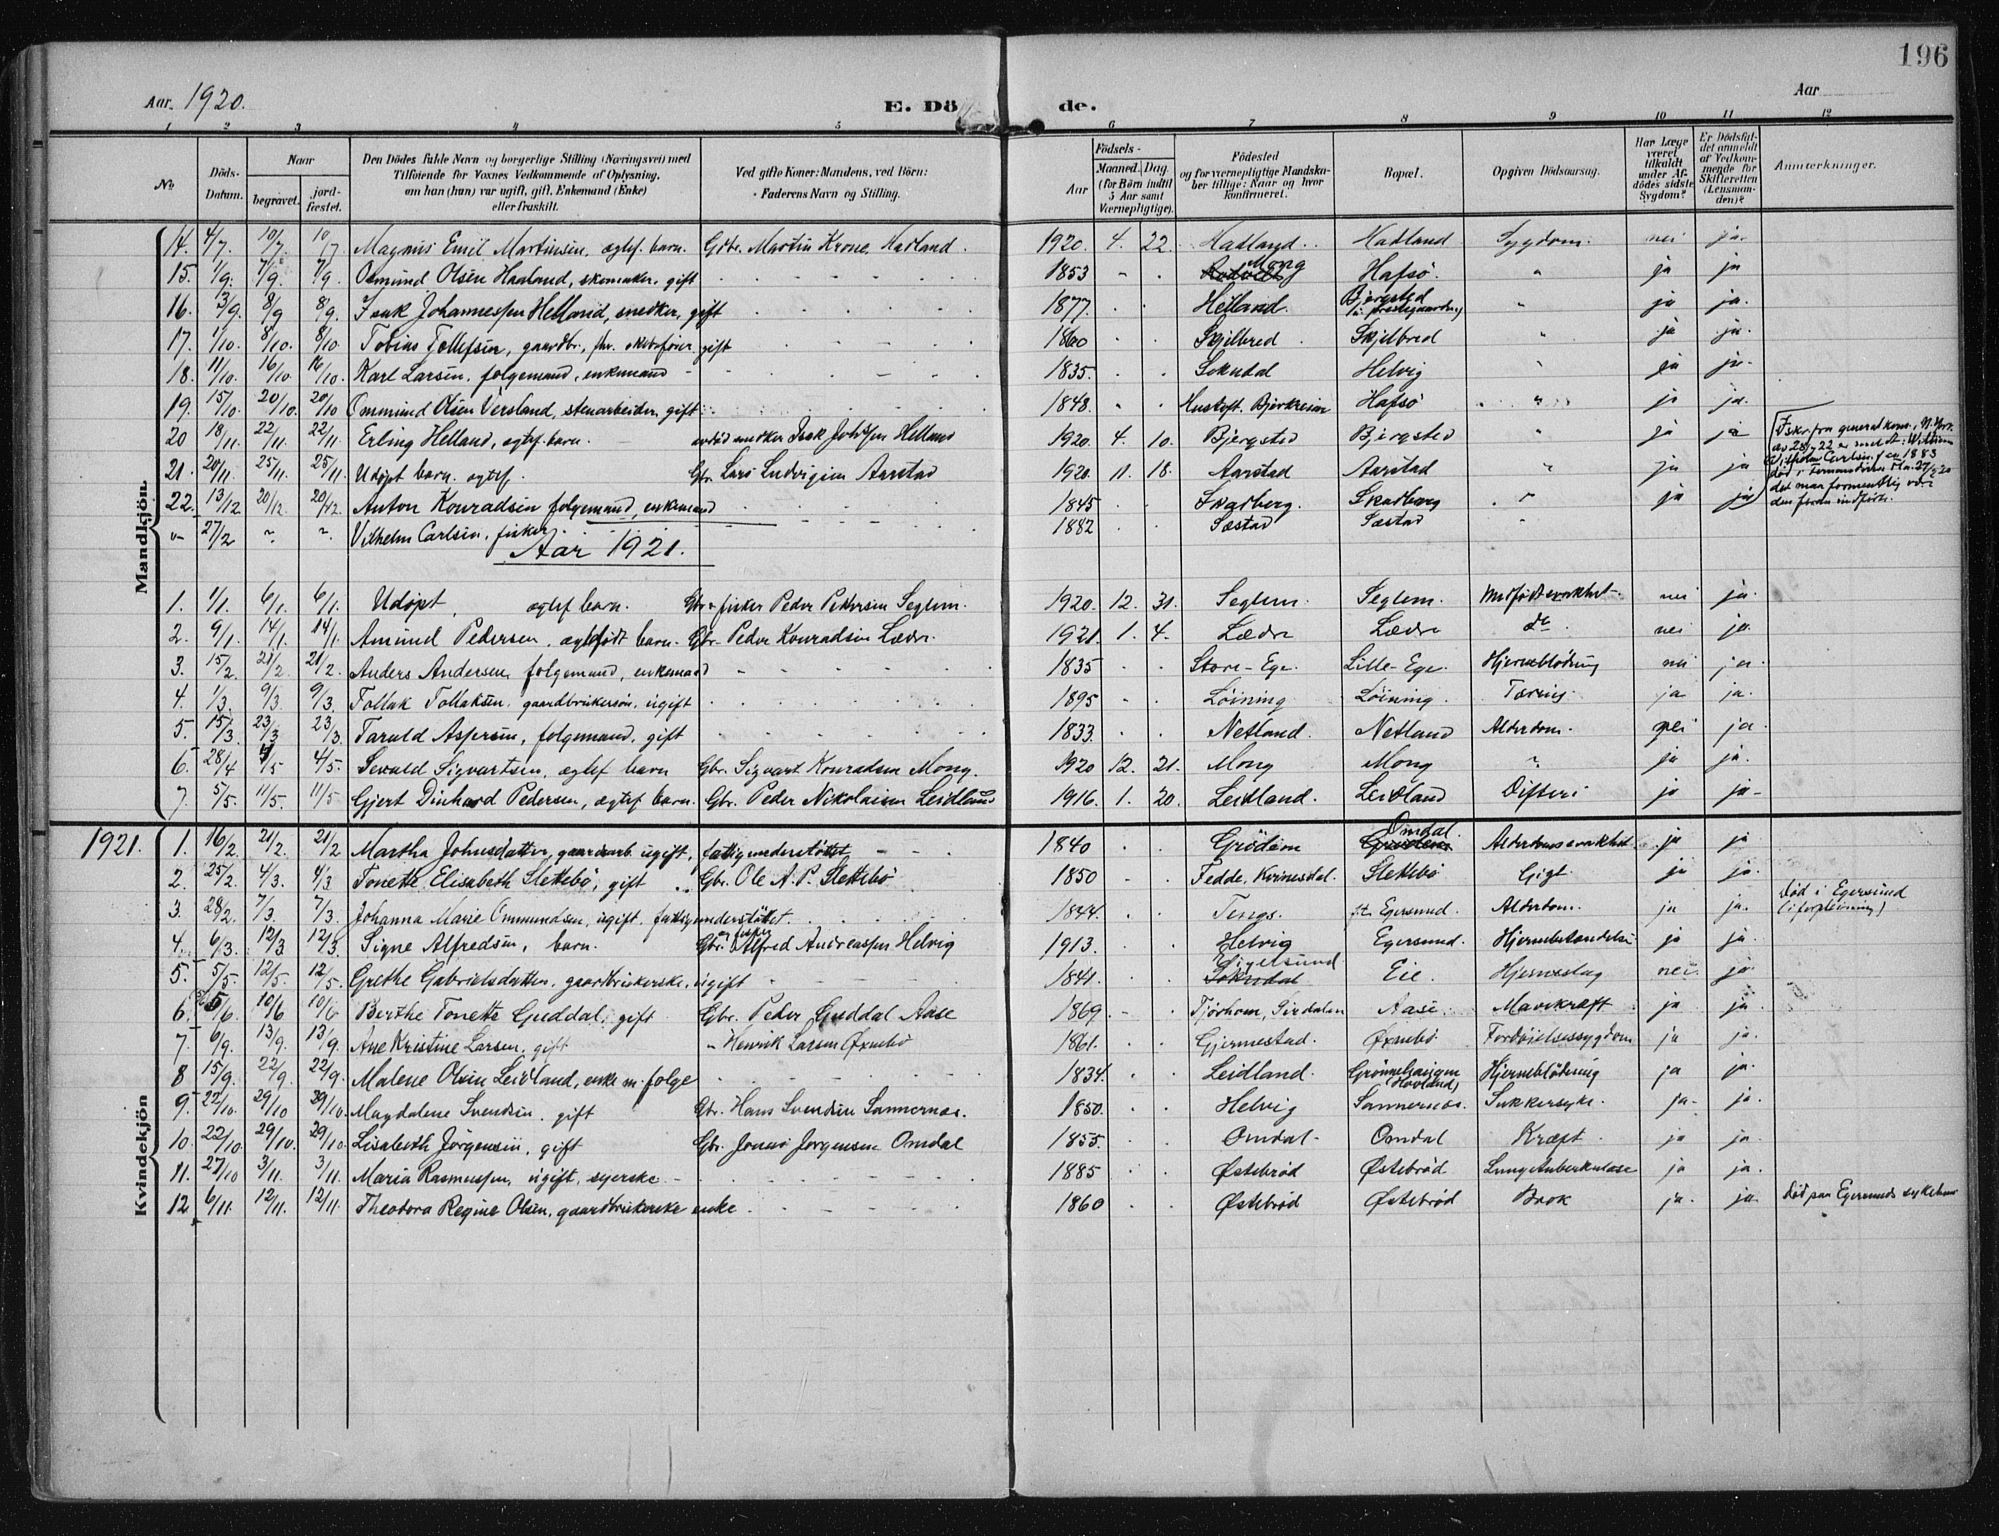 196
Aar 1920. E. Dö de. Aar
1 2 3 4 5 6 7 8 9 10 11 12
No
Döds-Datum.
Naar
begravet.
jordfæstet.
Den Dödes fulde Navn og borgerlige Stilling (Næringsvei) med
Tilföiende for Voxnes Vedkommende af Oplysning,
om han (hun) var ugift, gift, Enkemand (Enke)
eller fraskilt.
Ved gifte Koner: Mandens, ved Börn:
Faderens Navn og Stilling.
Födsels-
Aar
Maaned. Dag
(for Börn indtil
5 Aar samt
Værnepligtige).
Födested
og for værnepligtige Mandskaber tillige: Naar og hvor
konfirmeret.
Bopæl.
Opgiven Dödsaarsag.
Har Læge været tilkaldt under Afdödes sidste Sygdom?
Er Dödsfaldet anmeldt af Vedkommende for Skifteretten (Lensmanden)?
Anmærkninger.
Mandkjön.
14. 4/7 10/7 10/7 Magnus Emil Martinsen, ægtef. barn. Gdbr. Martin Krone, Hadland. 1920. 4. 22. Hadland. Hadland Sygdom. nei ja.
15. 1/9. 7/9. 7/9. Osmund Olsen Haaland, skomaker, gift 1853 Mong Hafsö. " ja ja
16. 3/9. 8/9 8/9. Isak Johannessen Helland, snedker, gift 1877. Helland. Bjergsted (i prestegaarden) " ja ja.
17. 1/10. 8/10. 8/10. Tobias Tollefsen, gaardbr., fhv. skibsfører gift 1860 Skjilbred Skjilbred " ja ja.
18. 11/10. 16/10. 16/10. Karl Larsen, folgemand, enkemand 1835. Sokndal Helvig " ja ja.
19. 15/10. 20/10. 20/10 Ommund Olsen Versland, stenarbeider, gift 1848. Hustoft. Bjerkreim Hafsö " ja ja.
20 18/11. 22/11. 22/11. Erling Helland, ægtef. barn. avdød snedker Isak Johssen Helland 1920. 4. 10. Bjergsted Bjergsted ja ja
21. 20/11. 25/11. 25/11. Udøpt barn. ægtef. Gbr. Lars Ludvigsen Aarstad 1920. 11. 18. Aarstad Aarstad " ja ja
22. 13/12 20/12. 20/12. Anton Konradsen folgemand, enkemand 1845 Skadberg. Skadberg " ja ja
27/2 " " Vilhelm Carlsen, fisker. 1882 Sæstad Sæstad "
Fskr. fra generalkons., N. York
av 28/7 22
Carlsen f en 1883
død i 27/2 20
det maa formentlig være
den foran indførte.
Aar 1921.
1. 1/1. 6/1. 6/1. Udøpt, ægtef barn. Gbr. fisker Peder Pedersen Seglem. 1920. 12. 31. Seglem. Seglem. Medfødt svakhet nei ja.
2. 9/1. 14/1. 14/1. Amund Pedersen, ægtefødt barn. Gbr. Peder Konradsen Lædre. 1921. 1. 4. Lædre Lædre do. nei ja.
3. 15/2. 21/2 21/2. Anders Andersen folgemand, enkemand 1835 Store-Ege. Lille-Ege. Hjerneblödning nei ja.
4. 1/3. 9/3. 9/3. Tollak Tollaksen. gaardbrukersøn, ugift 1895 Löining Löining. Tæring. ja ja.
5. 15/3. 23/3 23/3. Tarald Aspersen, folgemand, gift 1833. Netland. Netland Alderdom. nei ja.
6. 28/4 4/5 4/5. Sevald Sigvartsen, ægtef barn Gbr. Sigvart Konradsen Mong. 1920 12. 21. Mong Mong " ja ja.
7. 5/5. 11/5. 11/5 Gjert Dinhard Pedersen, ægtef. barn. Gbr. Peder Nikolaisen Leidland 1916. 1. 20. Leidland. Leidland Difteri ja ja
1921.
Kvindekjön
1. 16/2. 21/2. 21/2 Martha Johnsdatter, gaardarb. ugift, fattigunderstøttet 1840 Grödeim Omdal. Alderdomssvakhet ja ja
2. 25/2. 4/3. 4/3. Tonette Elisabeth Slettebö, gift Gbr. Ole A. P. Slettebö 1850 Fedde, Kvinesdal. Slettebö Gigt. ja ja.
3. 28/2. 7/3. 7/3. Johanna Marie Ommundsen, ugift. fattigunderstøttet. 1844. Tengs. Egersund. Alderdom. ja ja. Død i Egersund (i forpleining)
4. 6/3. 12/3 12/3. Signe Alfredsen, barn. Gbr. og fisker Alfred Andreassen Helvig 1913. Helvig Egersund. Hjernebetændelse ja ja.
5. 5/5. 12/5. 12/5. Grethe Gabrielsdatter, gaardbrukerske, ugift 1841. Sigelsund Sokndal Eie. Hjerneslag nei ja
6. 5/6. 10/6 10/6 Berthe Tonette Gyddal, gift Gbr. Peder Gyddal Aase 1869 Tjörhom, Sirdalen Aase. Mavekræft ja ja.
7. 6/9. 13/9. 13/9. Ane Kristine Larsen, gift " Henrik Larsen Øxnebö 1861. Gjermestad. Øxnebö Fordøielsessygdom ja ja.
8 15/9. 22/9. 22/9. Malene Olsen Leidland, enke m. folge 1834. Leidland. Grönnehaugen (Hovland) Hjerneblödning ja ja.
9. 22/10. 29/10 29/10. Magdalene Svendsen. gift Gbr. Hans Svendsen Sannernæs. 1850. Helvig Sannernæs. Sukkersyke. ja. ja.
10. 22/10. 29/10. 29/10. Lisabeth Jörgensen, gift Gbr. Jonas Jörgensen Omdal 1855. Omdal. Omdal Kræft. ja ja
11. 27/10 3/11. 3/11. Maria Rasmussen, ugift, syerske 1885 Østebröd Østebröd Lungetuberkulose ja ja.
12. 6/11. 12/11. 12/11. Theodora Regine Olsen, gaardbrukerske enke 1860 Østebröd Østebröd Brok ja. ja. Død paa Egersunds sykehus